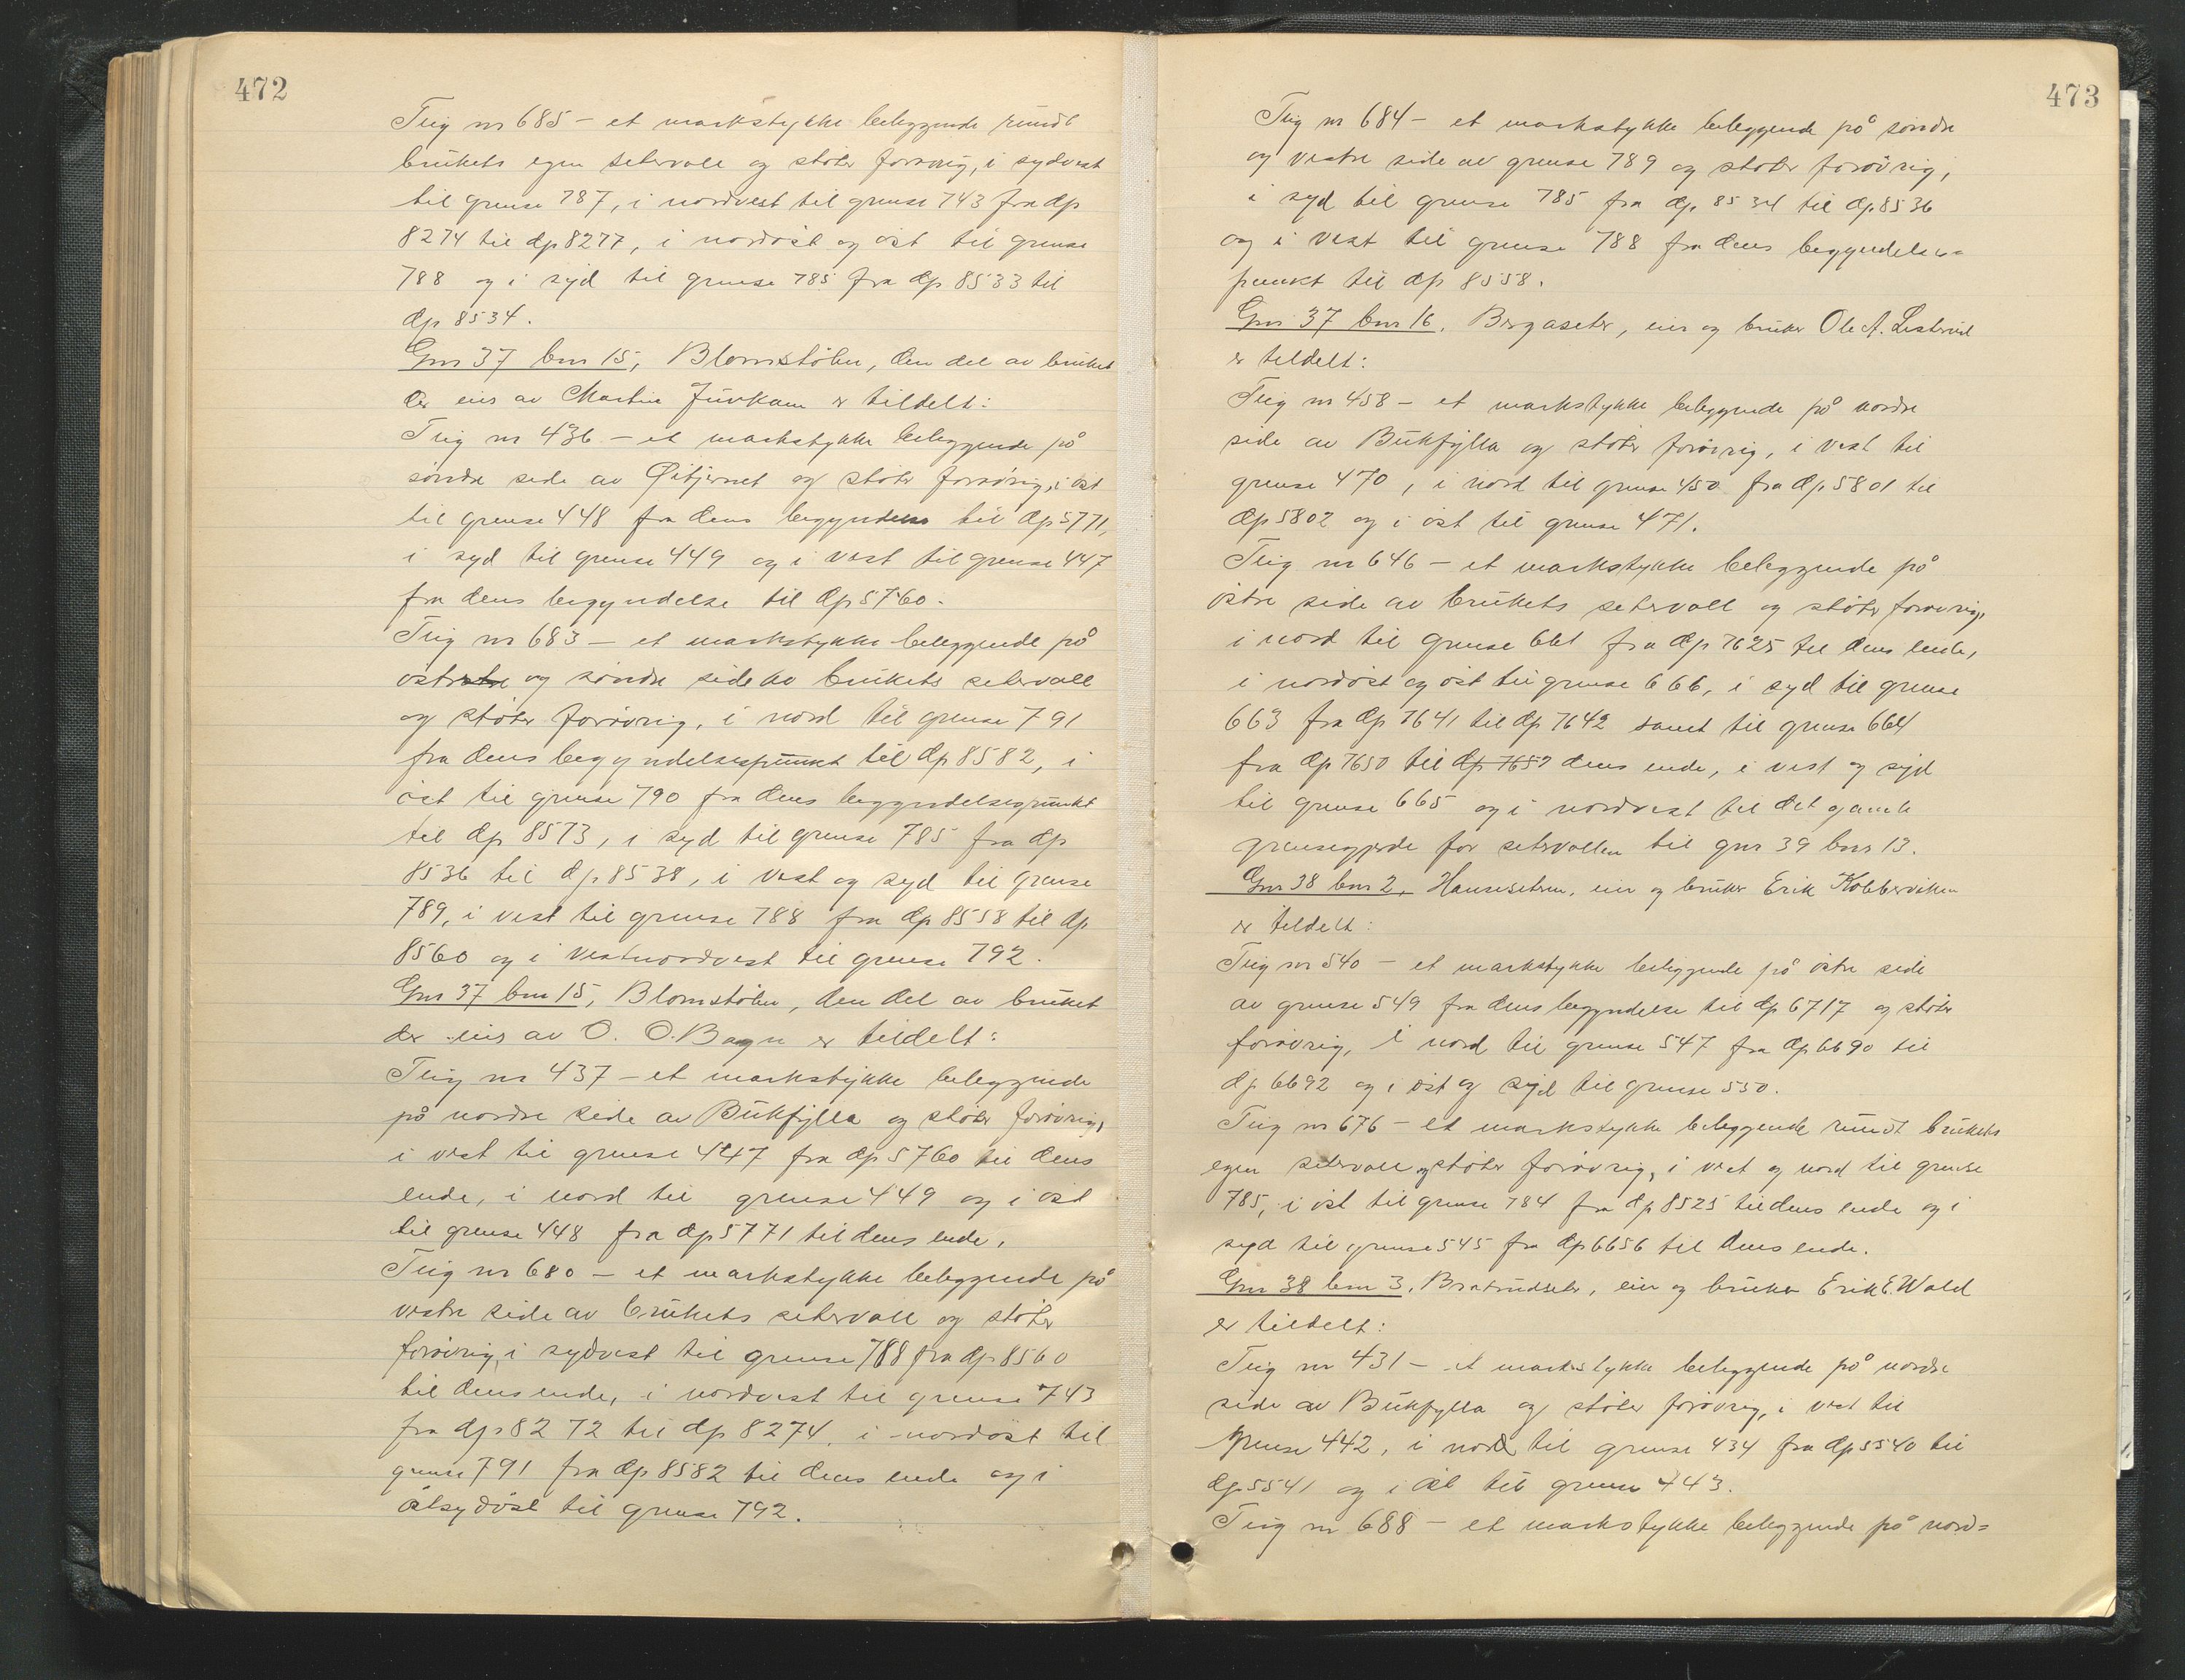 472
Teig nr 685 – et markstykke beliggende rundt
brukets egen setervoll og støter forøvrig, i sydvest
til grense 787, i nordvest til grense 743 fra dp
8274 til dp 8277, i nordøst og øst til grense
788 og i syd til grense 785 fra dp 8533 til
dp 8534.
Gnr 37 bnr 15, Blomstølen, den del av bruket
der eies av Martin Juvkam er tildelt:
Teig nr 436 – et markstykke beliggende på
søndre side av Øitjernet og støter forøvrig, i øst
til grense 448 fra dens begyndelse til dp 5771,
i syd til grense 449 og i vest til grense 447
fra dens begyndelse til dp 5760.
Teig nr 683 – et markstykke beliggende på
østre og søndre side av brukets setervoll
og støter forøvrig, i nord til grense 791
fra dens begyndelsespunkt til dp 8582, i
øst til grense 790 fra dens begyndelsespunkt
til dp 8573, i syd til grense 785 fra dp
8536 til dp 8538, i vest og syd til grense
789, i vest til grense 788 fra dp 8558 til dp
8560 og i vestnordvest til grense 792.
Gnr 37 bnr 15, Blomstølen, den del av bruket
der eies av O. O. Bagn er tildelt:
Teig nr 437 – et markstykke beliggende
på nordre side av Bukfylla og støter forøvrig,
i vest til grense 447 fra dp 5760 til dens
ende, i nord til grense 449 og i øst
til grense 448 fra dp 5771 til dens ende.
Teig nr 680 – et markstykke beliggende på
vestre side av brukets setervoll og støter
forøvrig, i sydvest til grense 788 fra dp 8560
til dens ende, i nordvest til grense 743
fra dp 8272 til dp 8274, i nordøst til
grense 791 fra dp 8582 til dens ende og i
østsydøst til grense 792.
473
Teig nr 684 – et markstykke beliggende på søndre
og vestre side av grense 789 og støter forøvrig,
i syd til grense 785 fra dp 8534 til dp 8536
og i vest til grense 788 fra dens begyndelses=
punkt til dp 8558.
Gnr 37 bnr 16. Bergaseter, eier og bruker Ole A. Listerud
er tildelt:
Teig nr 458 – et markstykke beliggende på nordre
side av Bukfylla og støter forøvrig, i vest til
grense 470, i nord til grense 450 fra dp 5801 til
dp 5802 og i øst til grense 471.
Teig nr 646 – et markstykke beliggende på
østre side av brukets setervoll og støter forøvrig,
i nord til grense 661 fra dp 7625 til dens ende,
i nordøst og øst til grense 666, i syd til grense
663 fra dp 7641 til dp 7642 samt til grense 664
fra dp 7650 til dp 7652 dens ende, i vest og syd
til grense 665 og i nordvest til det gamle
grensegjerde for setervollen til gnr 39 bnr 13.
Gnr 38 bnr 2, Hansesetren, eier og bruker Erik Kobberviken
er tildelt:
Teig nr 540 – et markstykke beliggende på østre side
av grense 549 fra dens begyndelse til dp 6717 og støter
forøvrig, i nord til grense 547 fra dp 6690 til
dp 6692 og i øst og syd til grense 550.
Teig nr 676 – et markstykke beliggende rundt brukets
egen setervoll og støter forøvrig, i vest og nord til grense
785, i øst til grense 784 fra dp 8525 til dens ende og i
syd til grense 545 fra dp 6656 til dens ende.
Gnr 38 bnr 3, Bratrudseter, eier og bruker Erik E. Wold
er tildelt:
Teig nr 431 – et markstykke beliggende på nordre
side av Bukfylla og støter forøvrig, i vest til
grense 442, i nord til grense 434 fra dp 5540 til
dp 5541 og i øst til grense 443.
Teig nr 688 – et markstykke beliggende på nord=